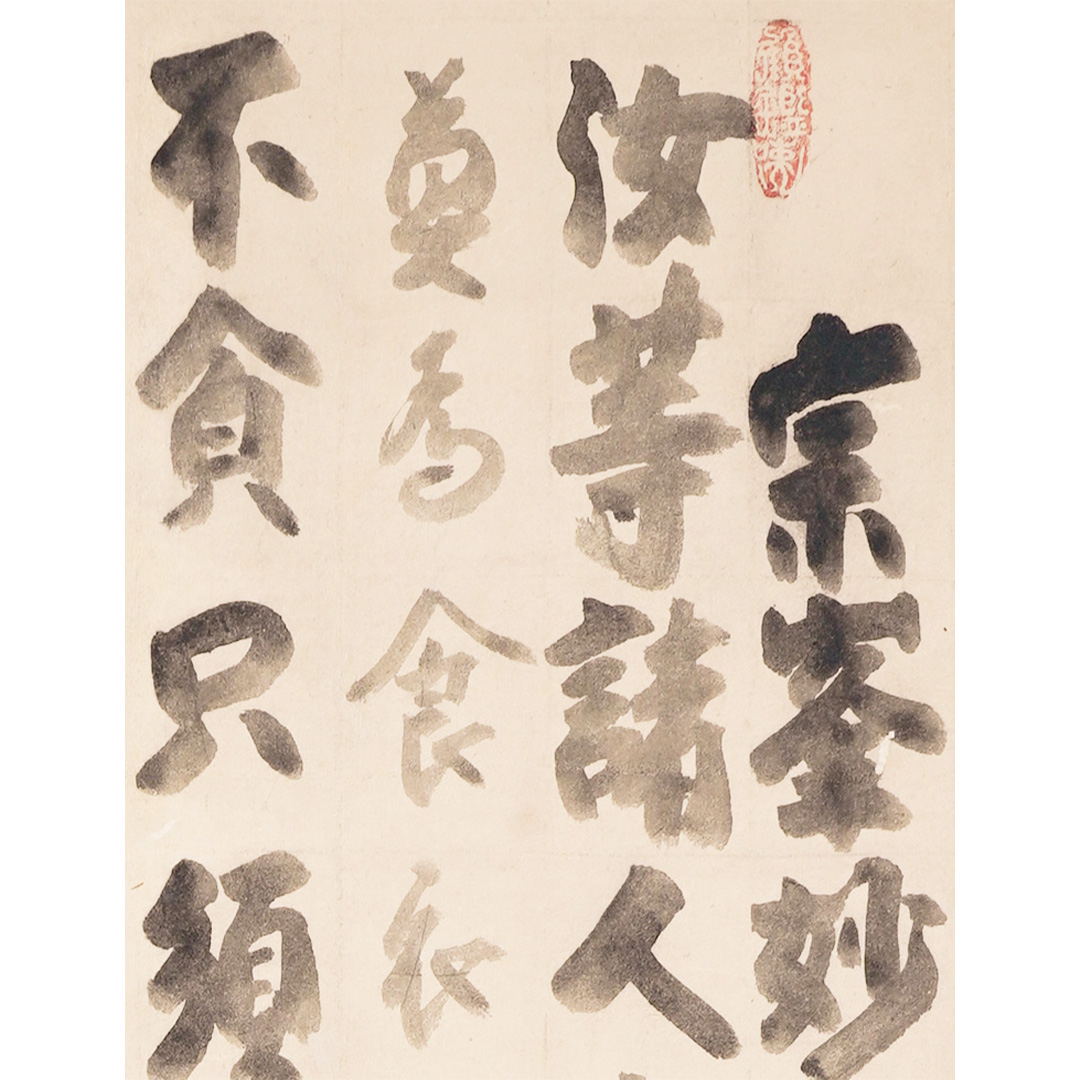 宗峯妙
汝等請人
莫為食衣
不貪只須